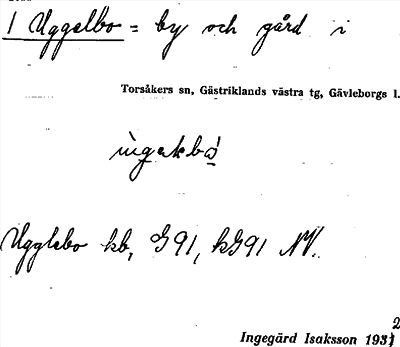 1 Uggelbo = by och gård i
Torsåkers sn, Gästriklands västra tg, Gävleborgs l.
Ugglebo kb, G91, kG91 NV.
2
Ingegärd Isaksson 1931